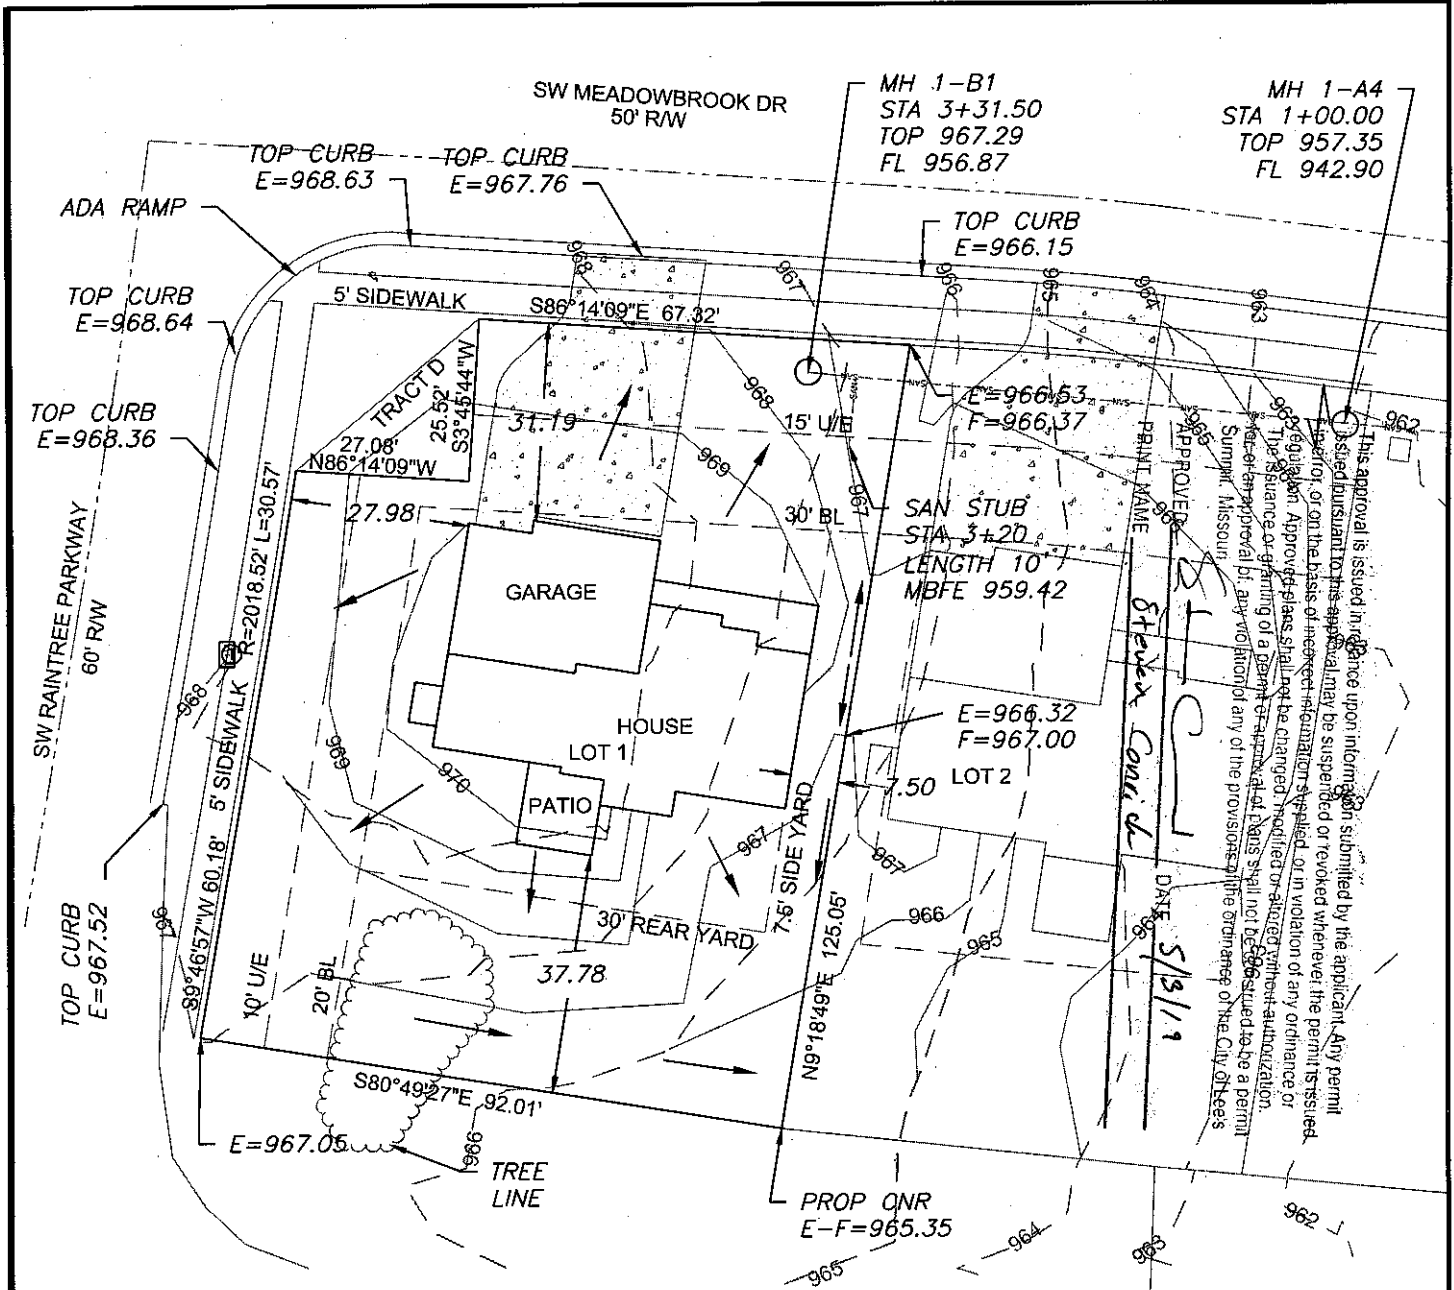 SW MEADOWBROOK DR
50' R/W
MH 1-B1
STA 3+31.50
TOP 967.29
FL 956.87
MH 1-A4
STA 1+00.00
TOP 957.35
FL 942.90
TOP CURB
E=968.63
TOP CURB
E=967.76
ADA RAMP
TOP CURB
E=966.15
TOP CURB
E=968.64
5' SIDEWALK
S86°14'09"E 67.32'
968
967
966
965
964
963
962
TRACT D
25.52'
S3°45'44"W
27.08'
N86°14'09"W
31.19
968
969
15' U/E
967
E=966.53
F=966.37
965
966
TOP CURB
E=968.36
27.98
30' BL
SAN STUB
STA 3+20
LENGTH 10'
MBFE 959.42
SW RAINTREE PARKWAY
60' R/W
R=2018.52' L=30.57'
GARAGE
968
5' SIDEWALK
969
970
HOUSE
LOT 1
PATIO
E=966.32
F=967.00
7.50
LOT 2
967
7.5' SIDE YARD
967
966
965
TOP CURB
E=967.52
967
S9°46'57"W 60.18'
10' U/E
20' BL
30' REAR YARD
37.78
N9°18'49"E 125.05'
S80°49'27"E 92.01'
E=967.05
966
TREE
LINE
PROP CNR
E-F=965.35
965
964
963
962
This approval is issued in reliance upon information submitted by the applicant. Any permit
issued pursuant to this approval may be suspended or revoked whenever the permit is issued
in error, or on the basis of incorrect information supplied, or in violation of any ordinance or
regulation. Approved plans shall not be changed, modified or altered without authorization.
The issuance or granting of a permit or approval of plans shall not be construed to be a permit
for, or an approval of, any violation of any of the provisions of the ordinance of the City of Lee's
Summit, Missouri
APPROVED DATE 5/3/19
PRINT NAME Steven Conrich